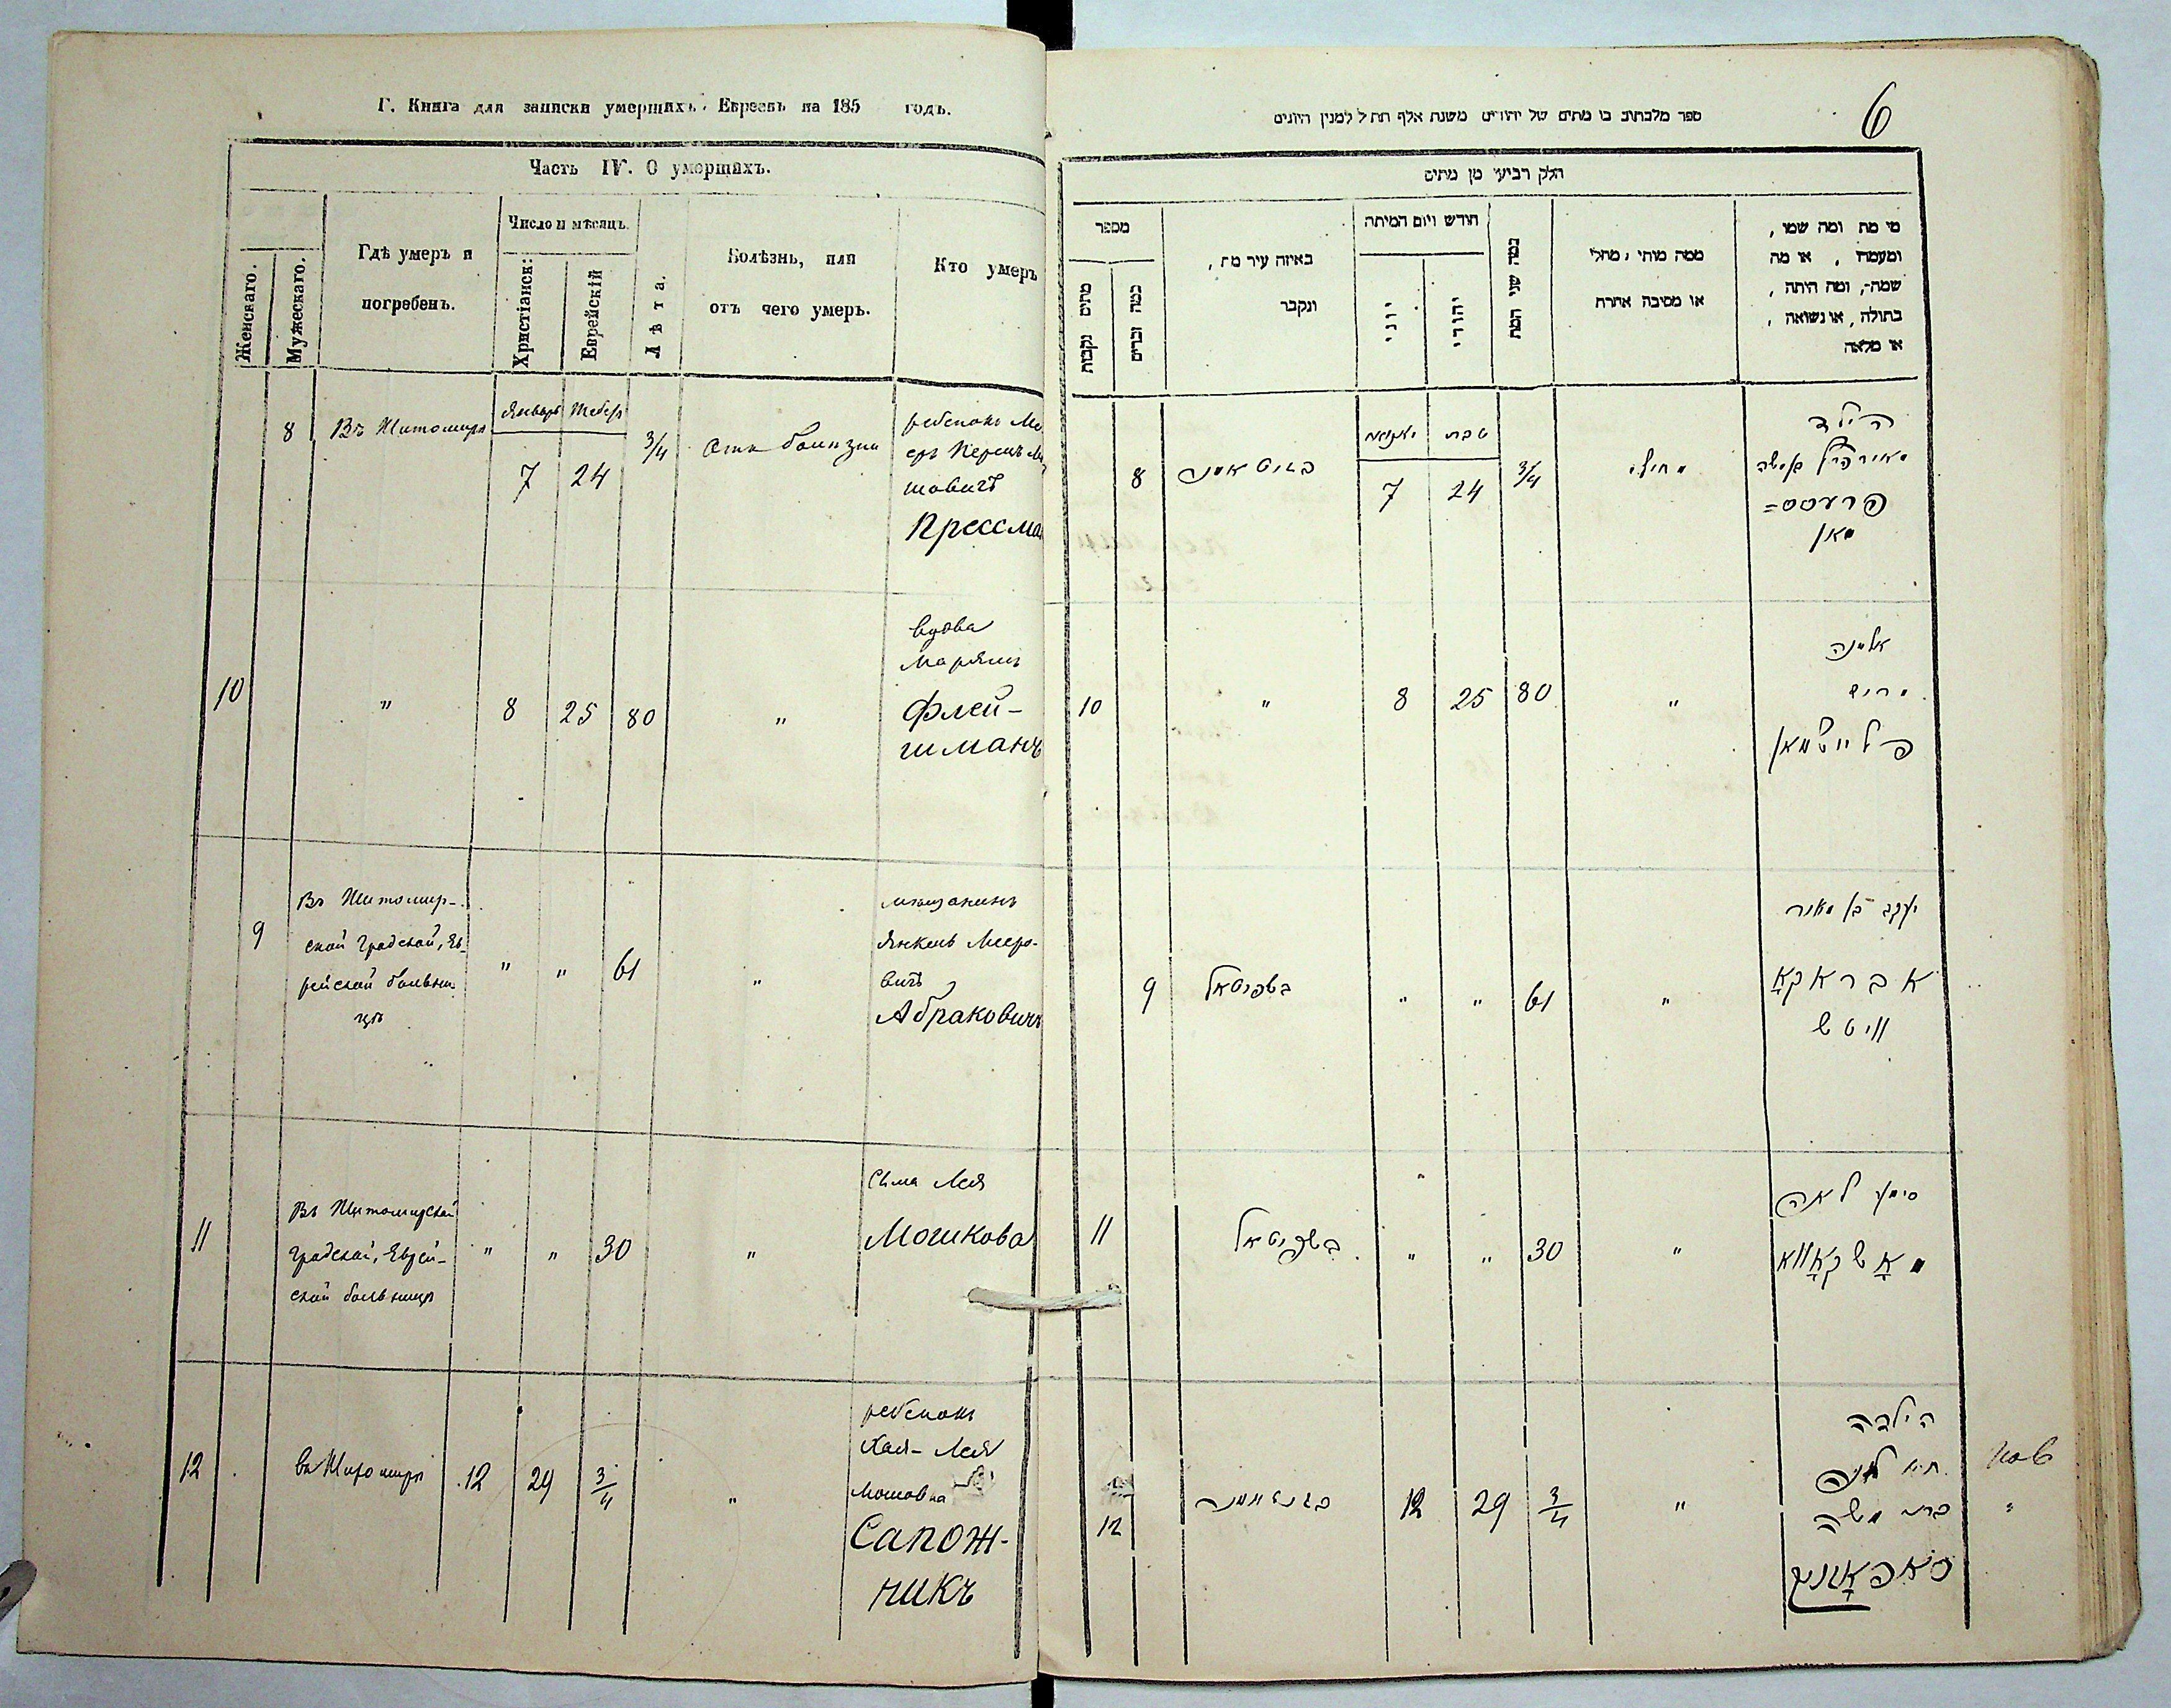 Г. Книга для записки умершихъ Евреевъ на 185 годъ.
Часть IV. О умершихъ.
Женскаго.
Мужескаго.
Гдѣ умеръ и
погребенъ.
Число и мѣсяцъ.
Христіанск:
Еврейскій
Лѣта.
Болѣзнь, или
отъ чего умеръ.
Кто умеръ
8
Въ Житомирѣ
Январь
Тебеѳ
7
24
3/4
Отъ болѣзни
ребенокъ Ме
еръ Перецъ Мо
шовичъ
Прессма
10
"
8
25
80
"
вдова
Марьямъ
Флей-
шманъ
9
Въ Житомир-
ской градской, Ев-
рейской больни
цѣ
"
"
61
"
мѣщанинъ
Янкель Мееро-
вичъ
Абраковичъ
11
Въ Житомирской
градской, Еврей-
ской больницѣ
"
"
30
"
Сима Лея
Мошкова
12
въ Житомирѣ
12
29
3/4
"
ребенокъ
Хая-Лея
Мошовна
Сапож-
никъ
6
ספר מלכתוב בו מתים של יהודים משנת אלף תת ל למנין היונים
חלק רביעי מן מתים
מספר
מתים נקבות
כמה זכרים
באיזה עיר מת,
ונקבר
חודש ויום המיתה
יוני
יהודי
כמה שני המת
ממה מותי, מחלי
או מסיבה אחרת
מי מת ומה שמו,
ומעמדו, או מה
שמה, ומה היתה,
בתולה, או נשואה,
או מלאה
8
יאנואר
טבת
7
24
3/4
הילד
מאיר פרץ בן משה
פרעסס=
מאן
10
"
8
25
80
"
אלמנה
מרים
פליישמאן
9
בשפיטאל
"
"
61
"
יעקב בן מאיר
אבראקאָ
וויטש
11
בשפיטאל
"
"
30
"
סימע לאה
מאָשקאָווא
12
12
29
3/4
"
הילדה
חיה לאה
בת משה
סאפאָזניק